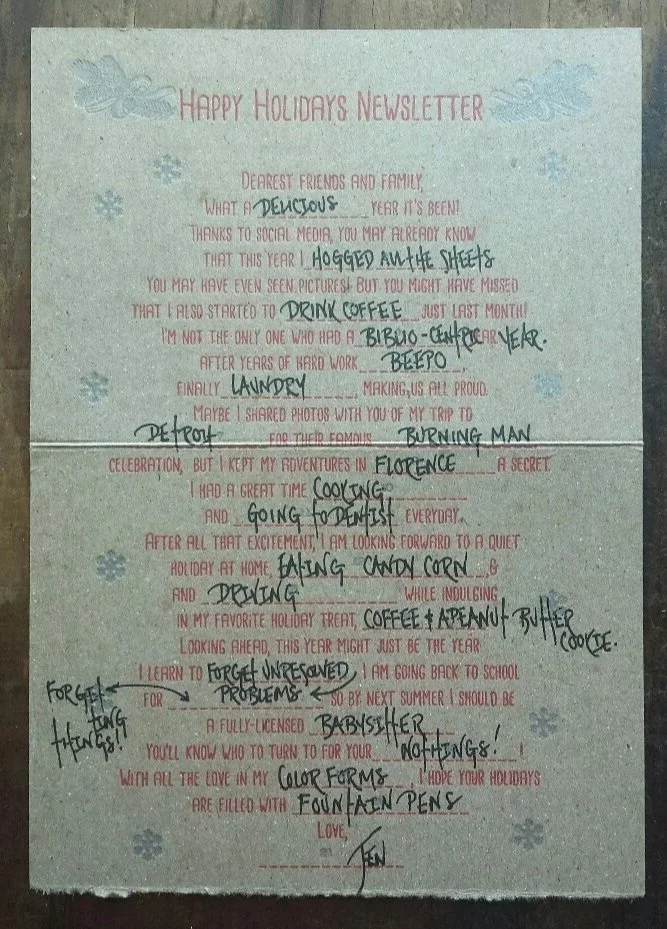 HAPPY HOLIDAYS NEWSLETTER
DEAREST FRIENDS AND FAMILY,
WHAT A DELICIOUS YEAR IT'S BEEN!
THANKS TO SOCIAL MEDIA, YOU MAY ALREADY KNOW
THAT THIS YEAR I HOGGED ALL THE SHEETS
YOU MAY HAVE EVEN SEEN PICTURES! BUT YOU MIGHT HAVE MISSED
THAT I ALSO STARTED TO DRINK COFFEE JUST LAST MONTH!
I'M NOT THE ONLY ONE WHO HAD A BIBLIO-CENTRIC YEAR.
AFTER YEARS OF HARD WORK BEEPO,
FINALLY LAUNDRY, MAKING US ALL PROUD.
MAYBE I SHARED PHOTOS WITH YOU OF MY TRIP TO
DETROIT FOR THEIR FAMOUS BURNING MAN
CELEBRATION, BUT I KEPT MY ADVENTURES IN FLORENCE A SECRET.
I HAD A GREAT TIME COOKING
AND GOING TO DENTIST EVERYDAY.
AFTER ALL THAT EXCITEMENT, I AM LOOKING FORWARD TO A QUIET
HOLIDAY AT HOME, EATING CANDY CORN &
AND DRIVING WHILE INDULGING
IN MY FAVORITE HOLIDAY TREAT, COFFEE & A PEANUT BUTTER
COOKIE.
LOOKING AHEAD, THIS YEAR MIGHT JUST BE THE YEAR
I LEARN TO FORGET UNRESOLVED, I AM GOING BACK TO SCHOOL
FOR PROBLEMS SO BY NEXT SUMMER I SHOULD BE
FORGET
TING
THINGS!
A FULLY-LICENSED BABYSITTER
YOU'LL KNOW WHO TO TURN TO FOR YOUR NOTHINGS! !
WITH ALL THE LOVE IN MY COLOR FORMS, I HOPE YOUR HOLIDAYS
ARE FILLED WITH FOUNTAIN PENS
LOVE,
JEN